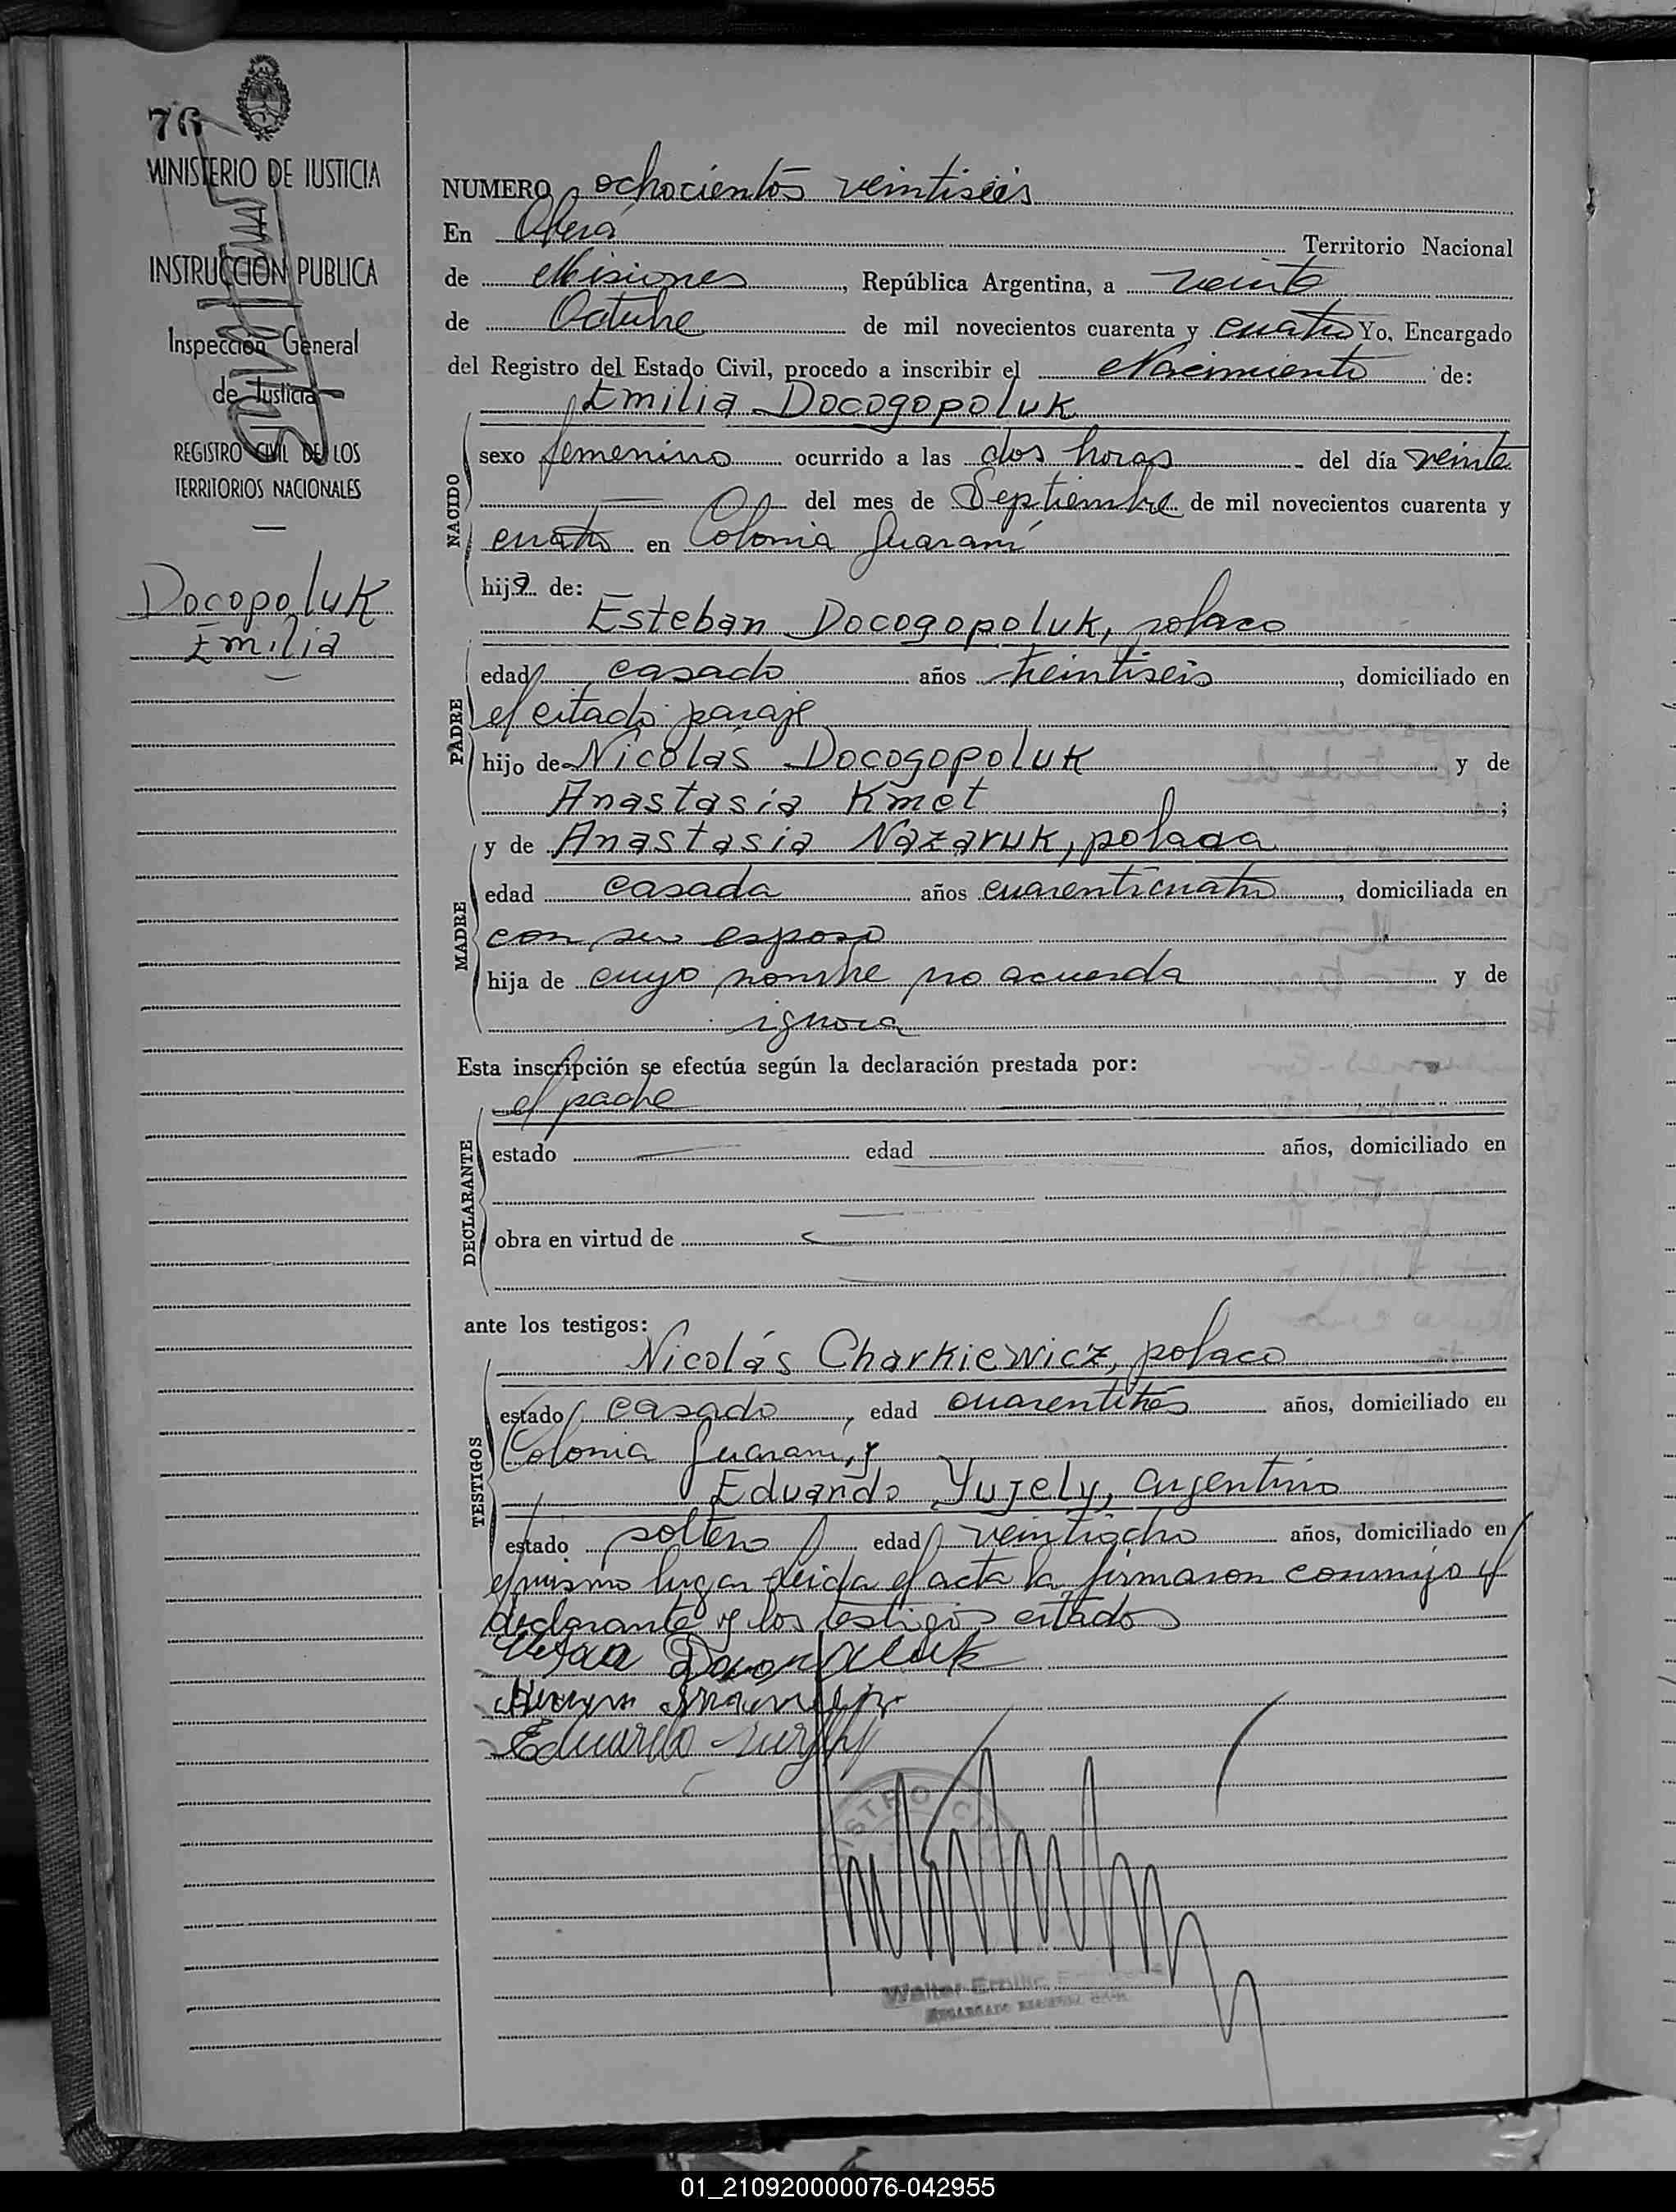 76
MINISTERIO DE JUSTICIA
INSTRUCCION PUBLICA
Inspección General
de Justicia
REGISTRO CIVIL DE LOS
TERRITORIOS NACIONALES
Docopoluk
Emilia
NUMERO ochocientos veintiseis
En Oberá Territorio Nacional
de Misiones, República Argentina, a veinte
de Octubre de mil novecientos cuarenta y cuatro Yo, Encargado
del Registro del Estado Civil, procedo a inscribir el Nacimiento de:
Emilia Docogopoluk
NACIDO
sexo femenino ocurrido a las dos horas del día veinte
del mes de Septiembre de mil novecientos cuarenta y
cuatro en Colonia Guaraní
hija de:
Esteban Docogopoluk, polaco
PADRE
edad casado años treintiseis, domiciliado en
el citado paraje
hijo de Nicolás Docogopoluk y de
Anastasia Kmet ;
y de Anastasia Nazaruk, polaca
MADRE
edad casada años cuarenticuatro, domiciliada en
con su esposo
hija de cuyo nombre no acuerda y de
ignora
Esta inscripción se efectúa según la declaración prestada por:
el padre
DECLARANTE
estado edad años, domiciliado en
obra en virtud de
ante los testigos:
Nicolás Charkiewicz, polaco
TESTIGOS
estado casado, edad cuarentitrés años, domiciliado en
Colonia Guaraní, y
Eduardo Yujely, argentino
estado soltero edad veintiocho años, domiciliado en
el mismo lugar leida el acta la firmaron conmigo el
declarante y los testigos citados
Eduardo
Walter Emilio
ENCARGADO REGISTRO CIVIL
01_210920000076-042955